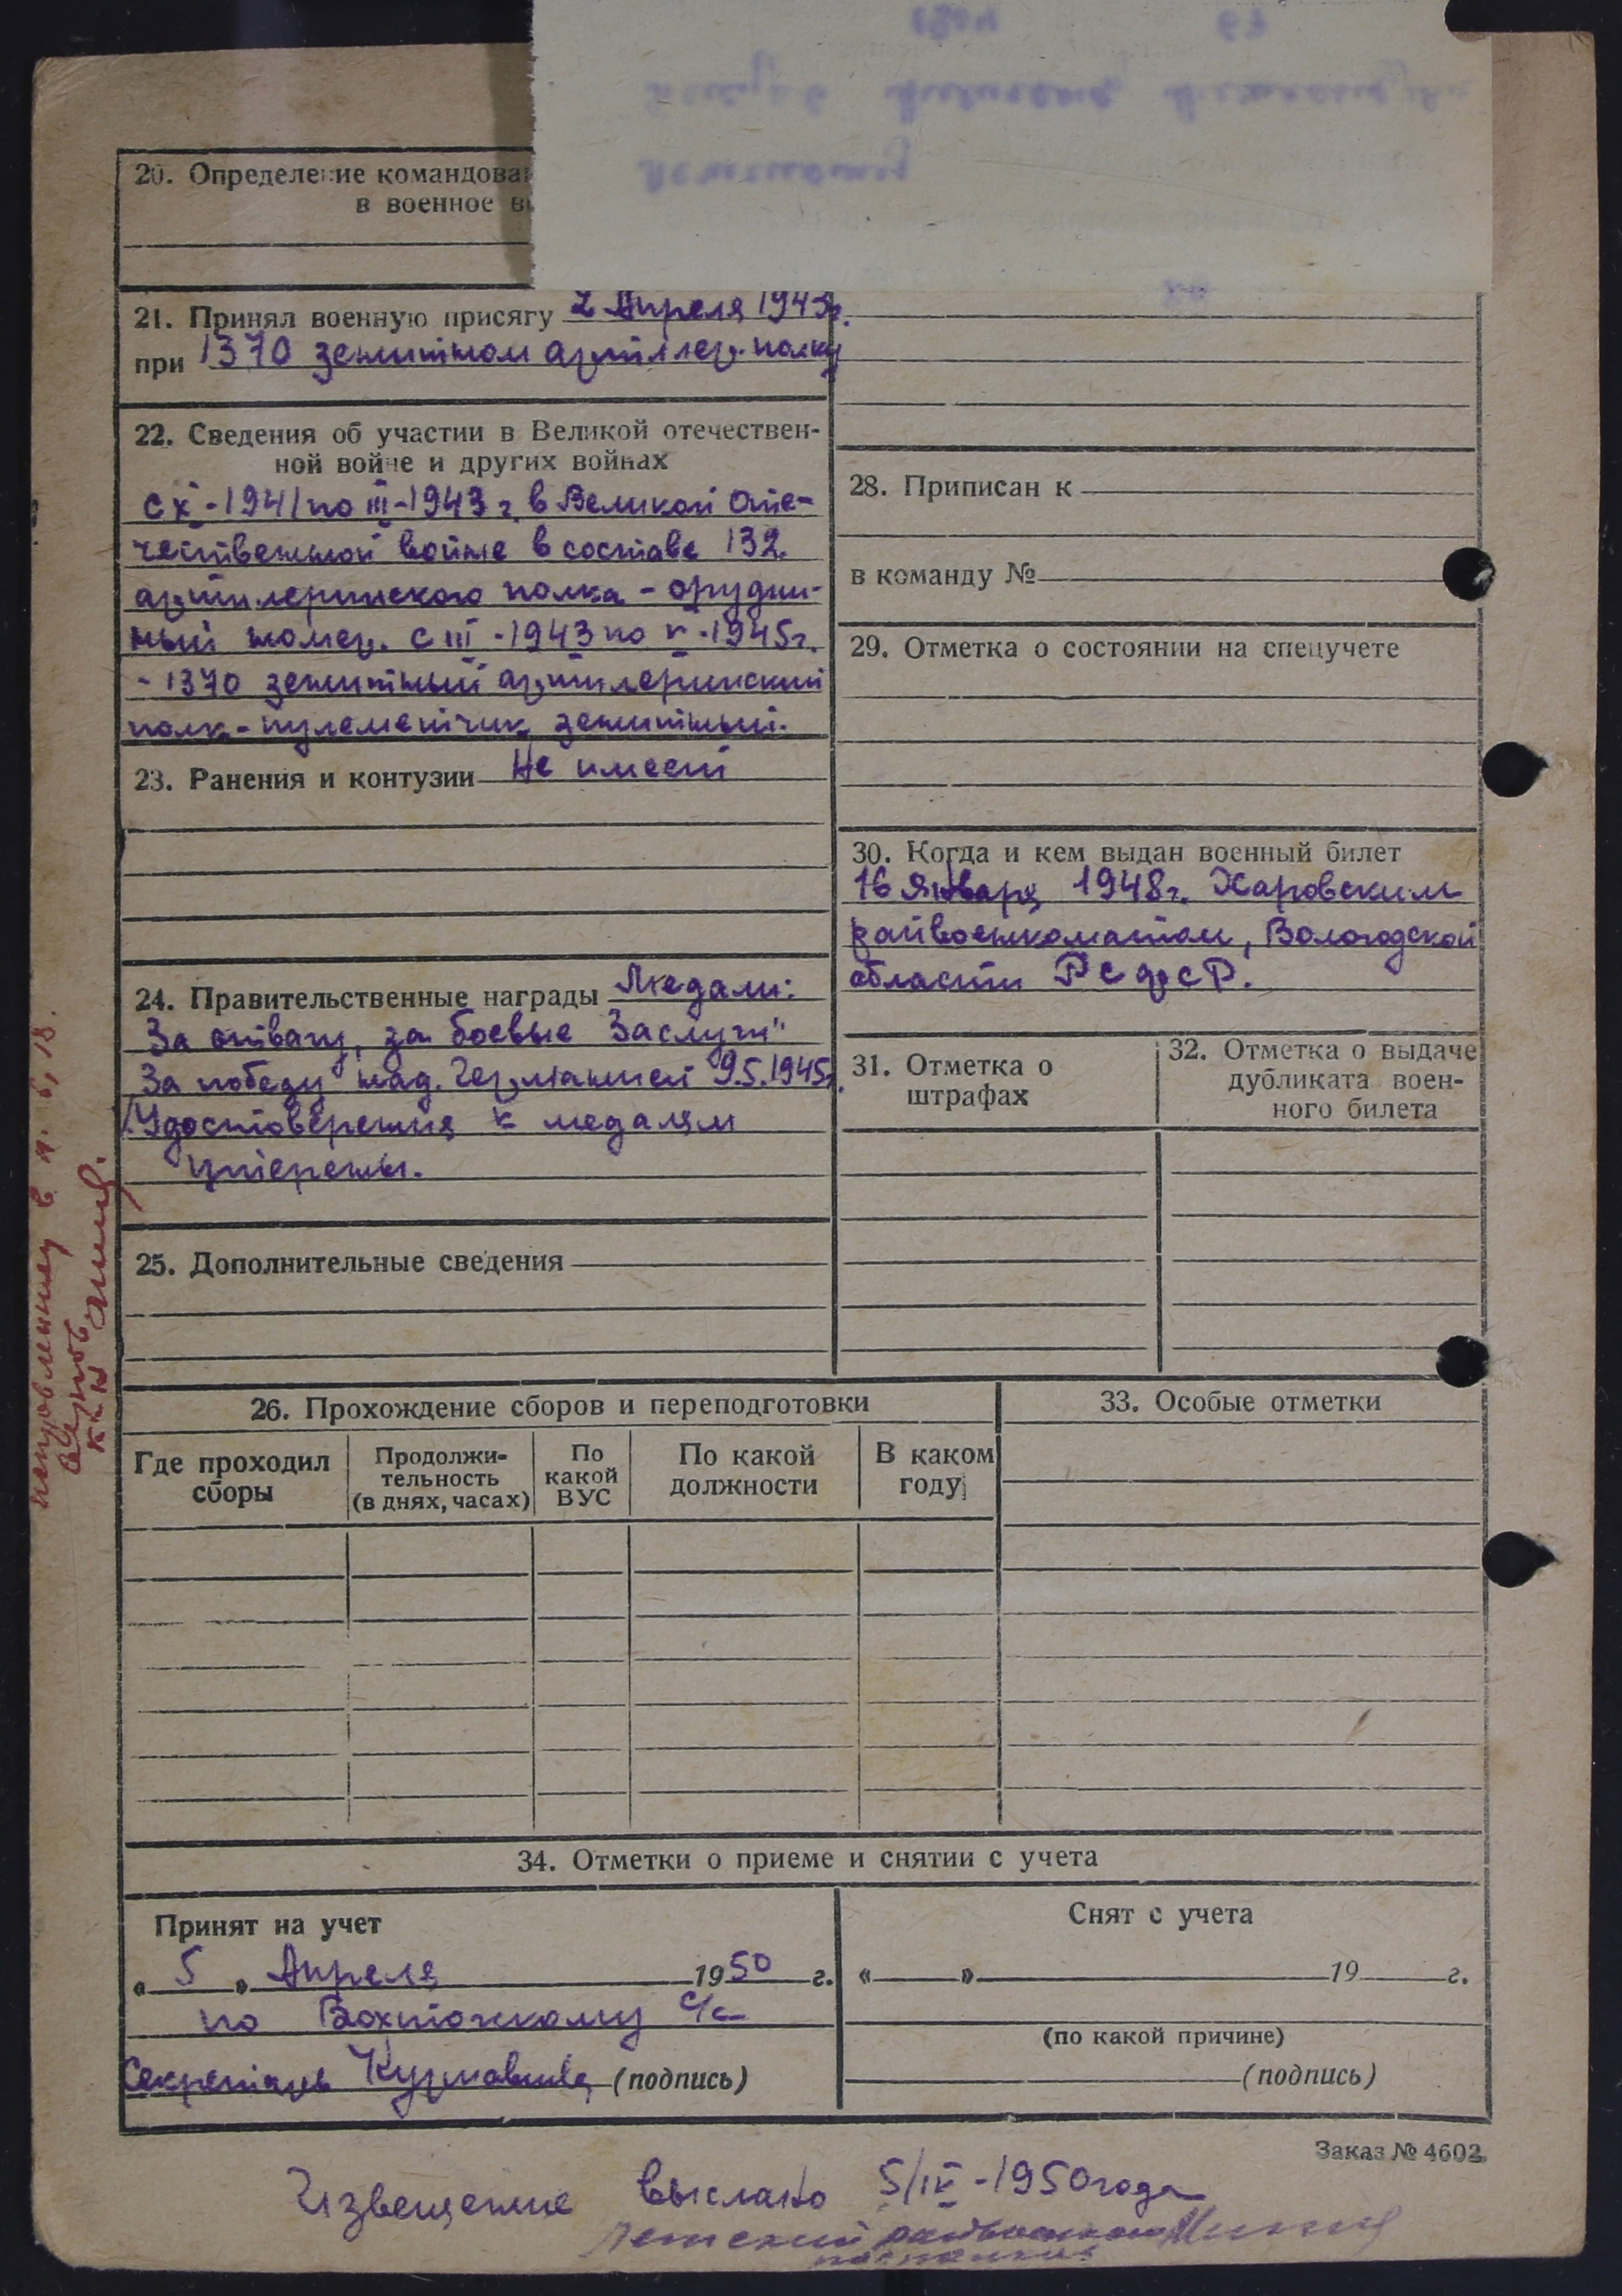 20. Определение командова
в военное в
21. Принял военную присягу 2 Апреля 1943г.
при 1370 зенитном артиллер. полку
22. Сведения об участии в Великой отечествен-
ной войне и других войнах
с X-1941 по III-1943 г. в Великой Оте-
чественной войне в составе 132
артилерийского полка - орудий-
ный номер. с III-1943 по V-1945г.
- 1370 зенитный артилерийский
полк - пулеметчик зенитный.
23. Ранения и контузии Не имеет
24. Правительственные награды Медали:
За отвагу, за боевые Заслуги"
За победу над. Германией 9.5.1945г.
Удостоверения к медалям
утеряны.
25. Дополнительные сведения
28. Приписан к
в команду №
29. Отметка о состоянии на спецучете
30. Когда и кем выдан военный билет
16 Января 1948г. Харовским
райвоенкоматом, Вологодской
области РСФСР.
31. Отметка о
штрафах
32. Отметка о выдаче
дубликата воен-
ного билета
26. Прохождение сборов и переподготовки
Где проходил
сборы
Продолжи-
тельность
(в днях, часах)
По
какой
ВУС
По какой
должности
В каком
году
33. Особые отметки
34. Отметки о приеме и снятии с учета
Принят на учет
« 5 » Апреля 1950 г.
по Вохтожскому с/с
Секретарь (подпись)
Снят с учета
« » 19 г.
(по какой причине)
(подпись)
Заказ № 4602.
Извещение выслано 5/IV-1950 года